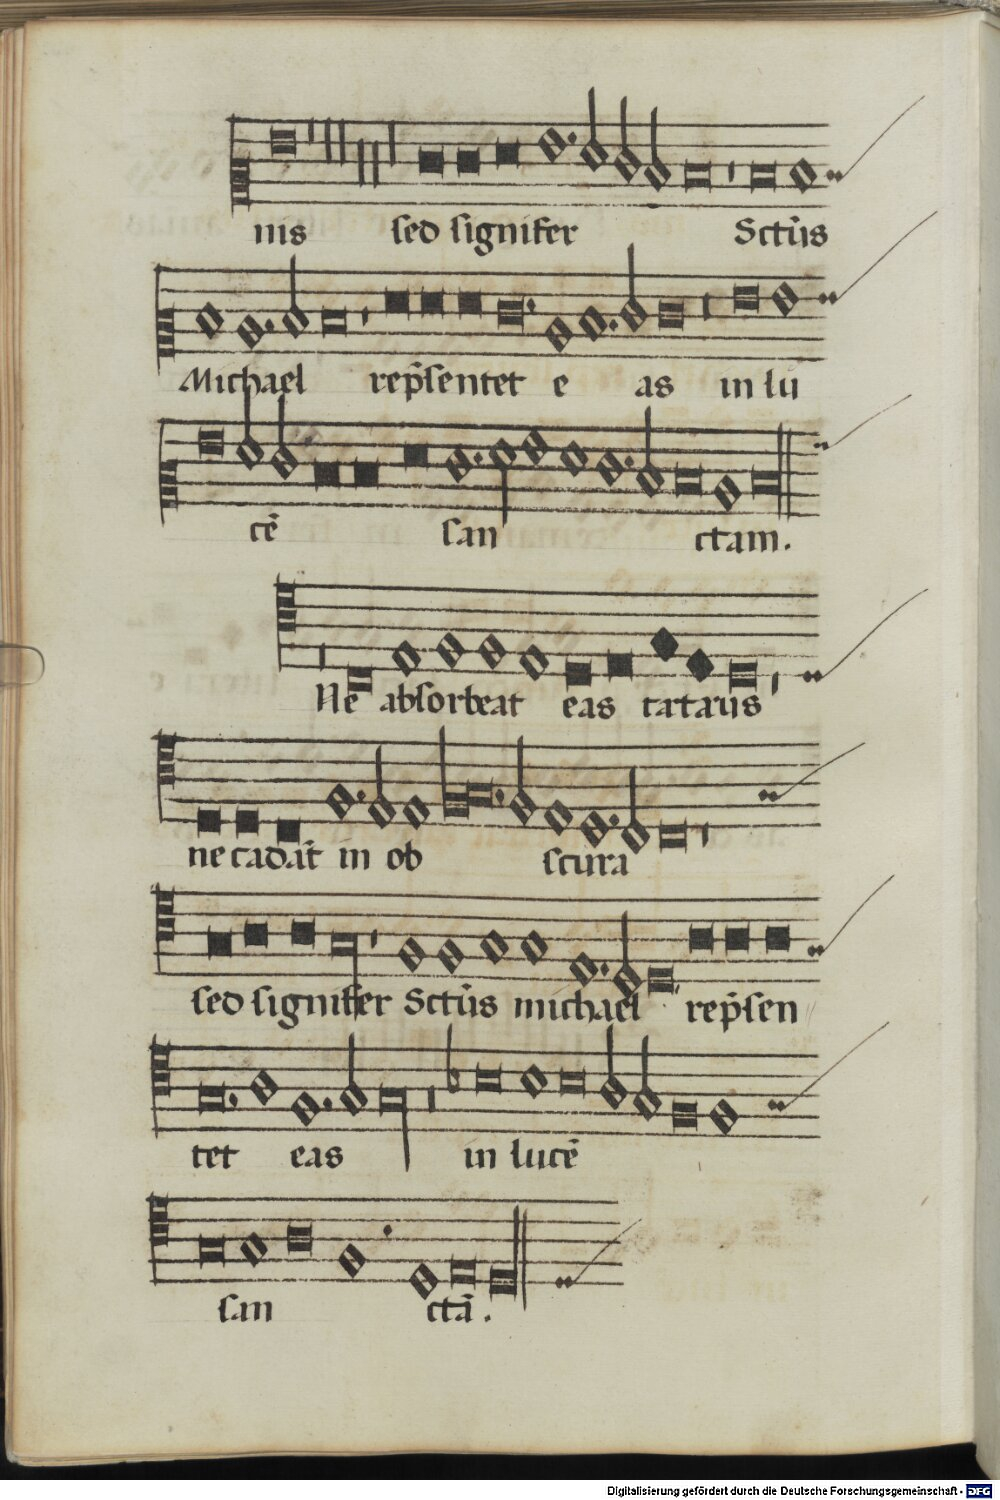 nis sed signifer Sctūs
Michael rep̄sentet e as in lu
cē san ctam.
Ne absorbeat eas tatarus
ne cadāt in ob scura
sed signifer Sctūs michael rep̄sen
tet eas in lucē
san ctā.
Digitalisierung gefördert durch die Deutsche Forschungsgemeinschaft - DFG